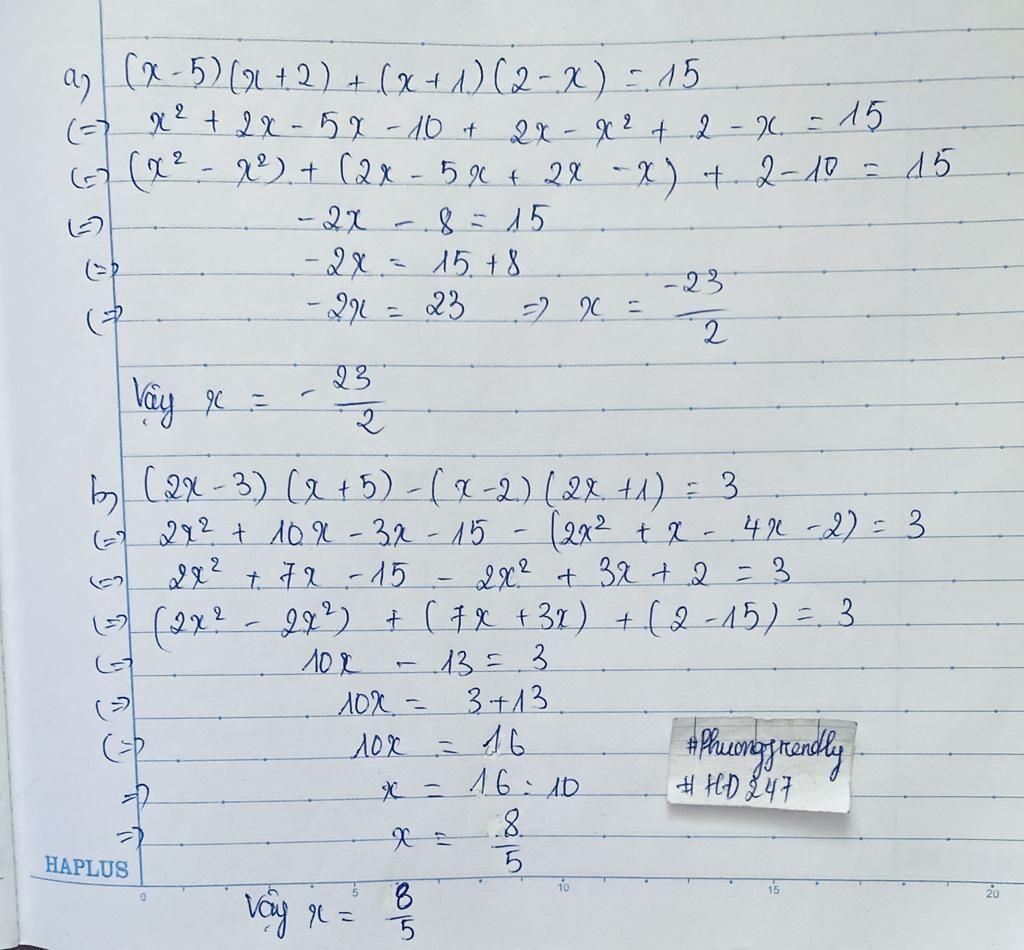 a) (x - 5) (x + 2) + (x + 1) (2 - x) = 15
(=) x² + 2x - 5x - 10 + 2x - x² + 2 - x = 15
(=) (x² - x²) + (2x - 5x + 2x - x) + 2 - 10 = 15
(=) - 2x - 8 = 15
(=) - 2x = 15 + 8
(=) - 2x = 23 => x = -23/2
Vậy x = - 23/2
b) (2x - 3) (x + 5) - (x - 2) (2x + 1) = 3
(=) 2x² + 10x - 3x - 15 - (2x² + x - 4x - 2) = 3
(=) 2x² + 7x - 15 - 2x² + 3x + 2 = 3
(=) (2x² - 2x²) + (7x + 3x) + (2 - 15) = 3
(=) 10x - 13 = 3
(=) 10x = 3 + 13
(=) 10x = 16
=> x = 16 : 10
=> x = 8/5
#Phuongfrendly
# HD 247
HAPLUS
0 5 10 15 20
Vậy x = 8/5